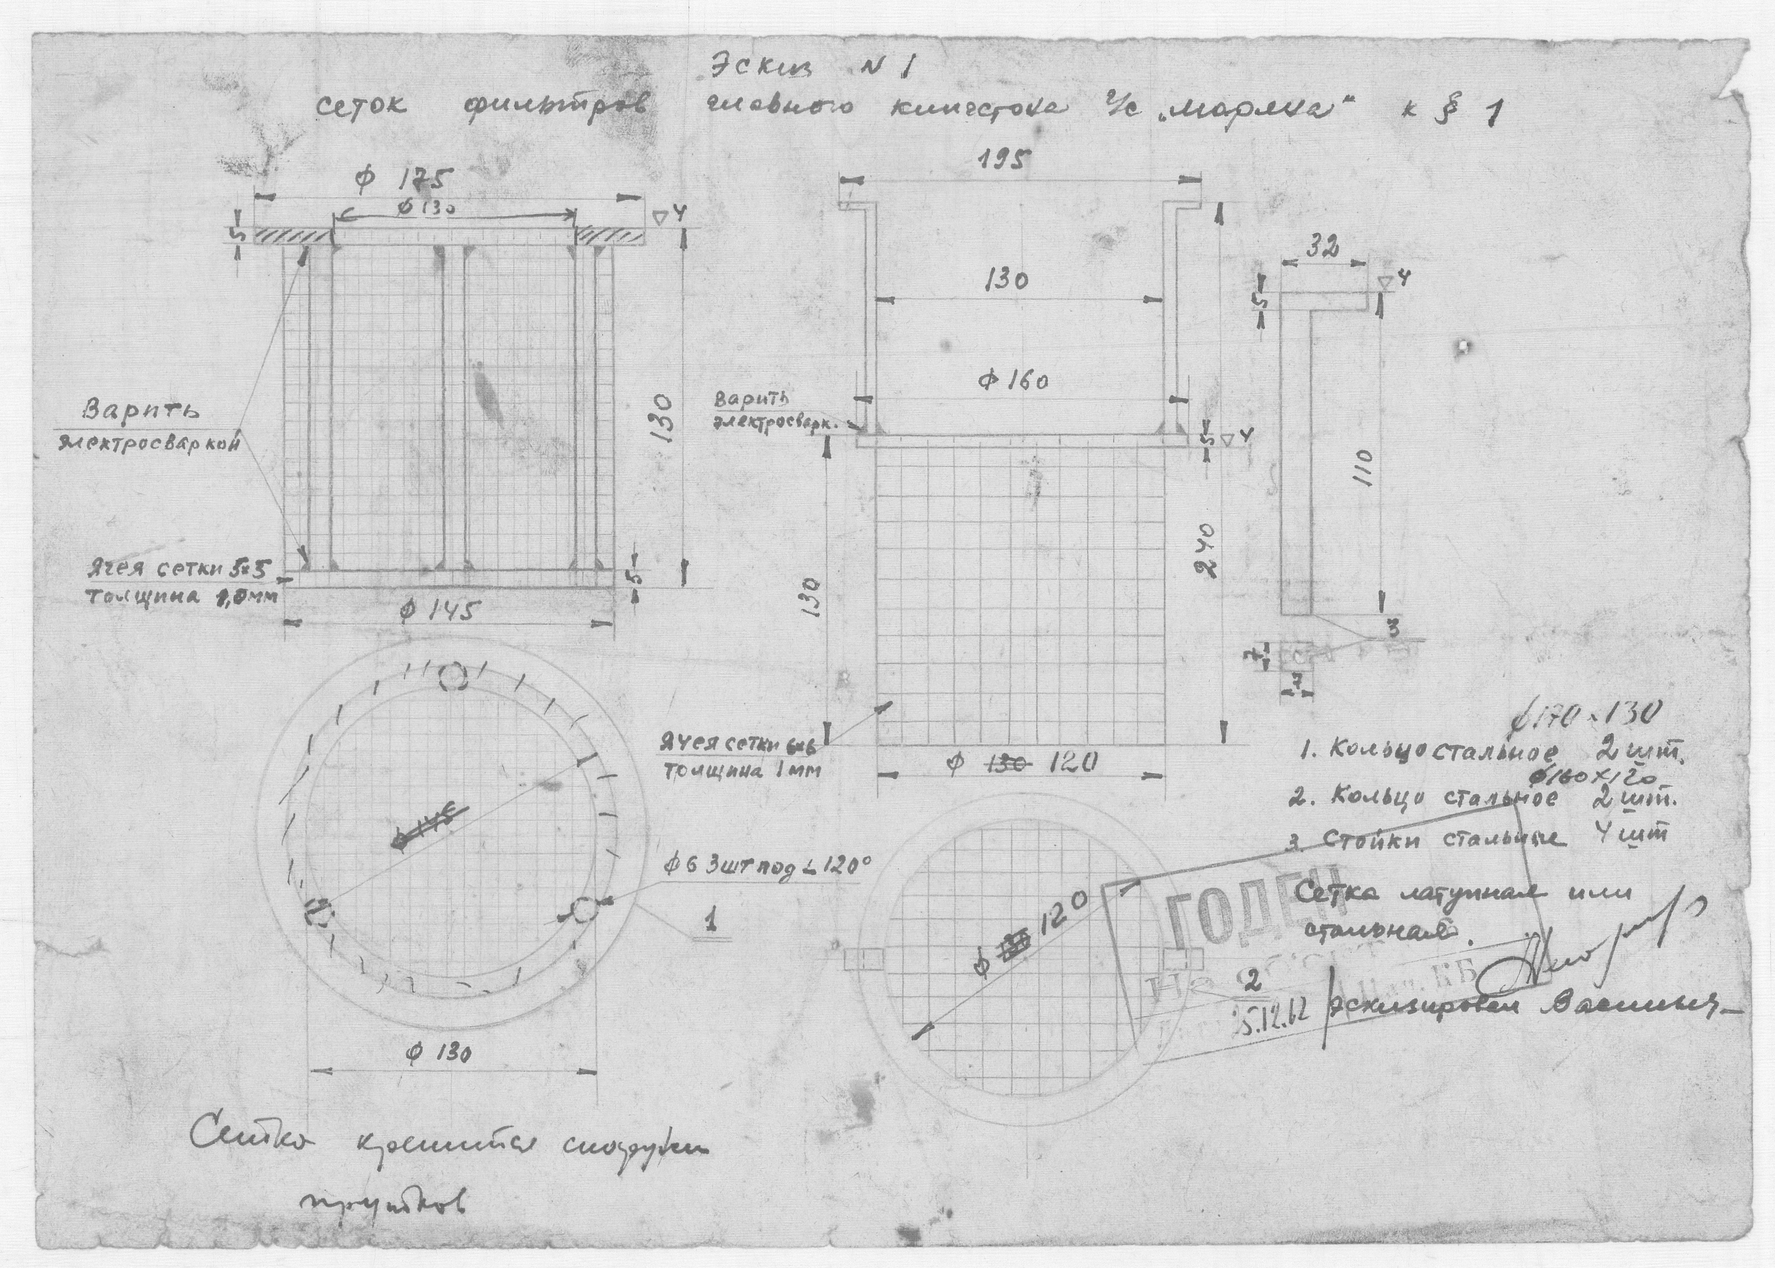 Эскиз N 1
сеток фильтров главного кингстона т/с „Марлха" к § 1
ф 175
ф 130
5
▽4
130
Варить
электросваркой
Ячея сетки 5×5
толщина 1,0 мм
5
ф 145
195
130
ф 160
Варить
электросварк.
5
▽4
130
240
Ячея сетки 6×6
толщина 1 мм
ф 130 120
32
5
▽4
110
3
7
7
ф 145
ф 6 3шт под ∟120°
1
ф 130
ф 130 120
2
ф170×130
1. Кольцо стальное 2 шт.
ф160×120
2. Кольцо стальное 2 шт.
3. Стойки стальные 4 шт
Сетка латунная или
стальная.
ГОДЕН
5.12.62
Эскизировал
Сетка крепится снаружи
прутков